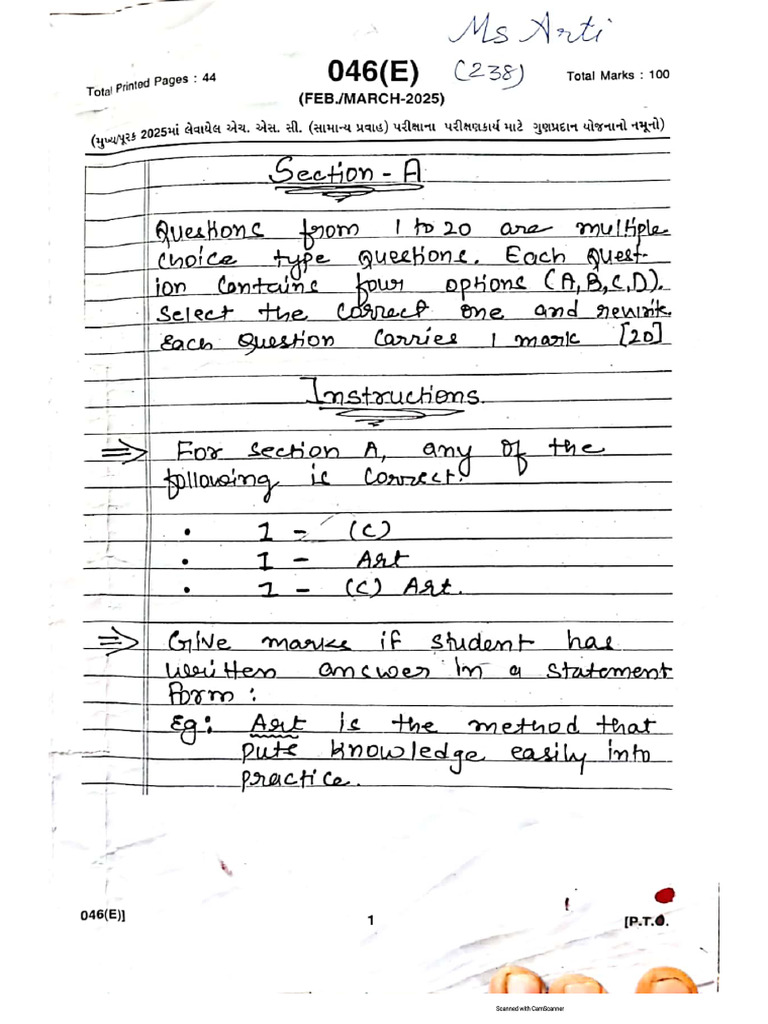 Ms Arti
Total Printed Pages : 44
046(E)
(238)
Total Marks : 100
(FEB./MARCH-2025)
(મુખ્ય/પૂરક 2025માં લેવાયેલ એચ. એસ. સી. (સામાન્ય પ્રવાહ) પરીક્ષાના પરીક્ષણકાર્ય માટે ગુણપ્રદાન યોજનાનો નમૂનો)
Section - A
Questions from 1 to 20 are multiple
choice type questions. Each Quest-
ion contains four options (A,B,C,D).
Select the correct one and rewrite.
Each Question carries 1 mark [20]
Instructions.
⇒ For section A, any of the
following is correct.
• 1 - (C)
• 1 - Art
• 1 - (C) Art.
⇒ Give marks if student has
written answer in a statement
form :
Eg: Art is the method that
puts knowledge easily into
practice.
046(E)]
1
[P.T.O.
Scanned with CamScanner